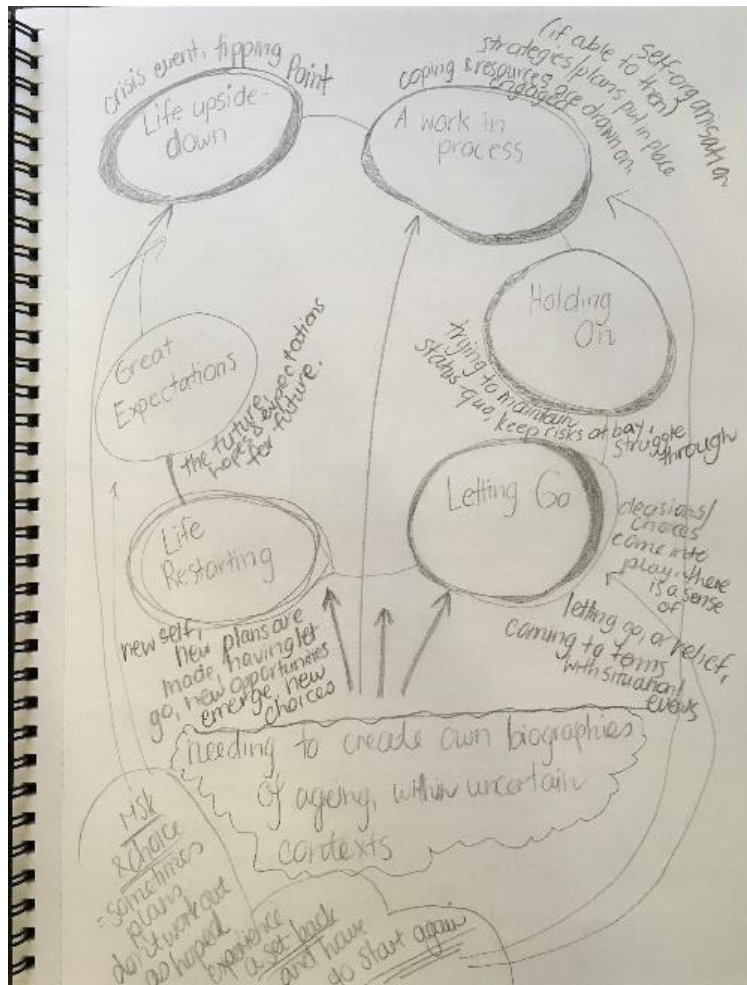 crisis event, tipping point
Life upside-
down
(if able to then)
self-organisation
strategies/plans, put in place
coping & resources are drawn on,
engaged
A work in
process
Holding
On
trying to maintain
status-quo, keep risks at bay,
struggle
through
Great
Expectations
the future,
hopes & expectations
for future.
Letting Go
decisions/
choices
come into
play, there
is a sense
of
letting go, or relief,
coming to terms
with situation/
events
Life
Restarting
new self,
new plans are
made, having let
go, new opportunities
emerge, new
choices
needing to create own biographies
of ageing, within uncertain
contexts
risk
& choice
= sometimes
plans
don't work out
as hoped
experience
a set-back
and have
to start again